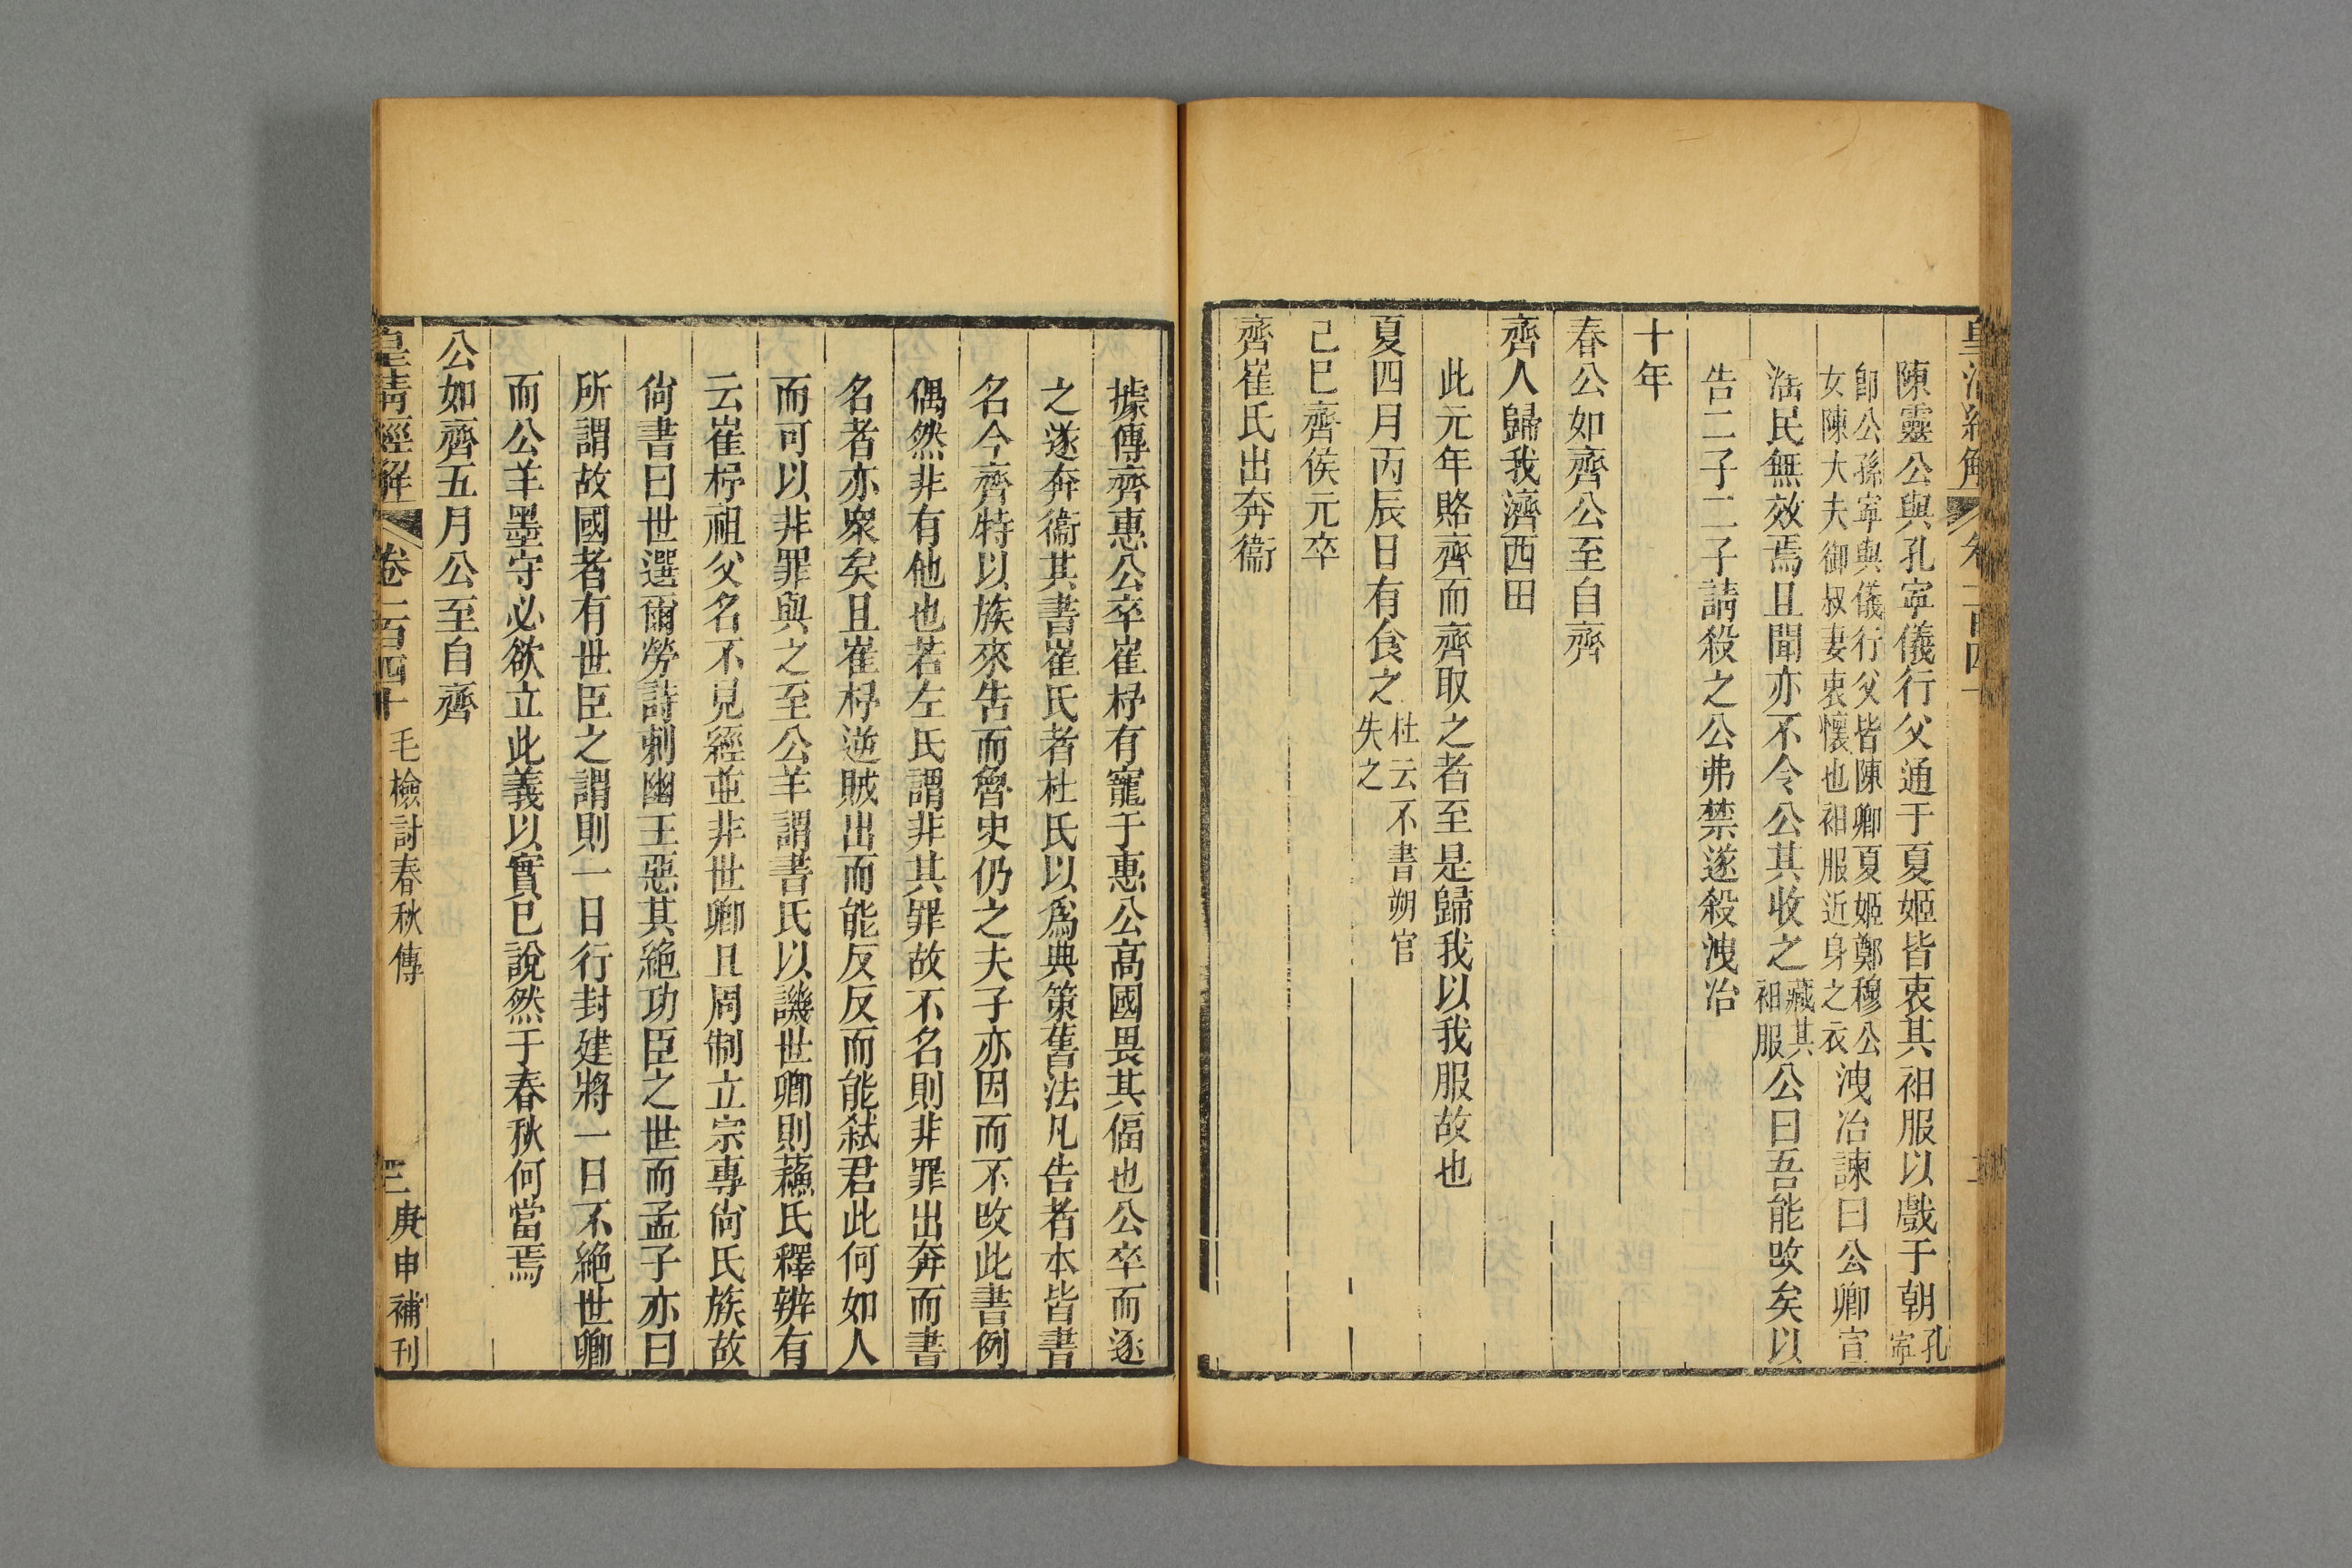 陳靈公與孔寧儀行父通于夏姬皆衷其衵服以戲于朝孔寧
卽公孫寧與儀行父皆陳卿夏姬鄭穆公女陳大夫御叔妻衷懷也衵服近身之衣洩冶諫曰公卿宣
滛民無效焉且聞亦不令公其收之藏其衵服公曰吾能攺矣以
告二子二子請殺之公弗禁遂殺洩冶
十年
春公如齊公至自齊
齊人歸我濟西田
此元年賂齊而齊取之者至是歸我以我服故也
夏四月丙辰日有食之杜云不書朔官失之
己巳齊侯元卒
齊崔氏出奔衞
據傳齊惠公卒崔杼有寵于惠公高國畏其偪也公卒而逐
之遂奔衞其書崔氏者杜氏以爲典策舊法凡告者本皆書
名今齊特以族來告而魯史仍之夫子亦因而不攺此書例
偶然非有他也若左氏謂非其罪故不名則非罪出奔而書
名者亦衆矣且崔杼逆賊出而能反反而能弑君此何如人
而可以非罪與之至公羊謂書氏以譏世卿則蘓氏釋辨有
云崔杼祖父名不見經並非世卿且周制立宗專尙氏族故
尙書曰世選爾勞詩刺幽王惡其絶功臣之世而孟子亦曰
所謂故國者有世臣之謂則一日行封建將一日不絶世卿
而公羊墨守必欲立此義以實已說然于春秋何當焉
公如齊五月公至自齊
皇清經解 卷一百四十 毛檢討春秋傳 三 庚申補刊